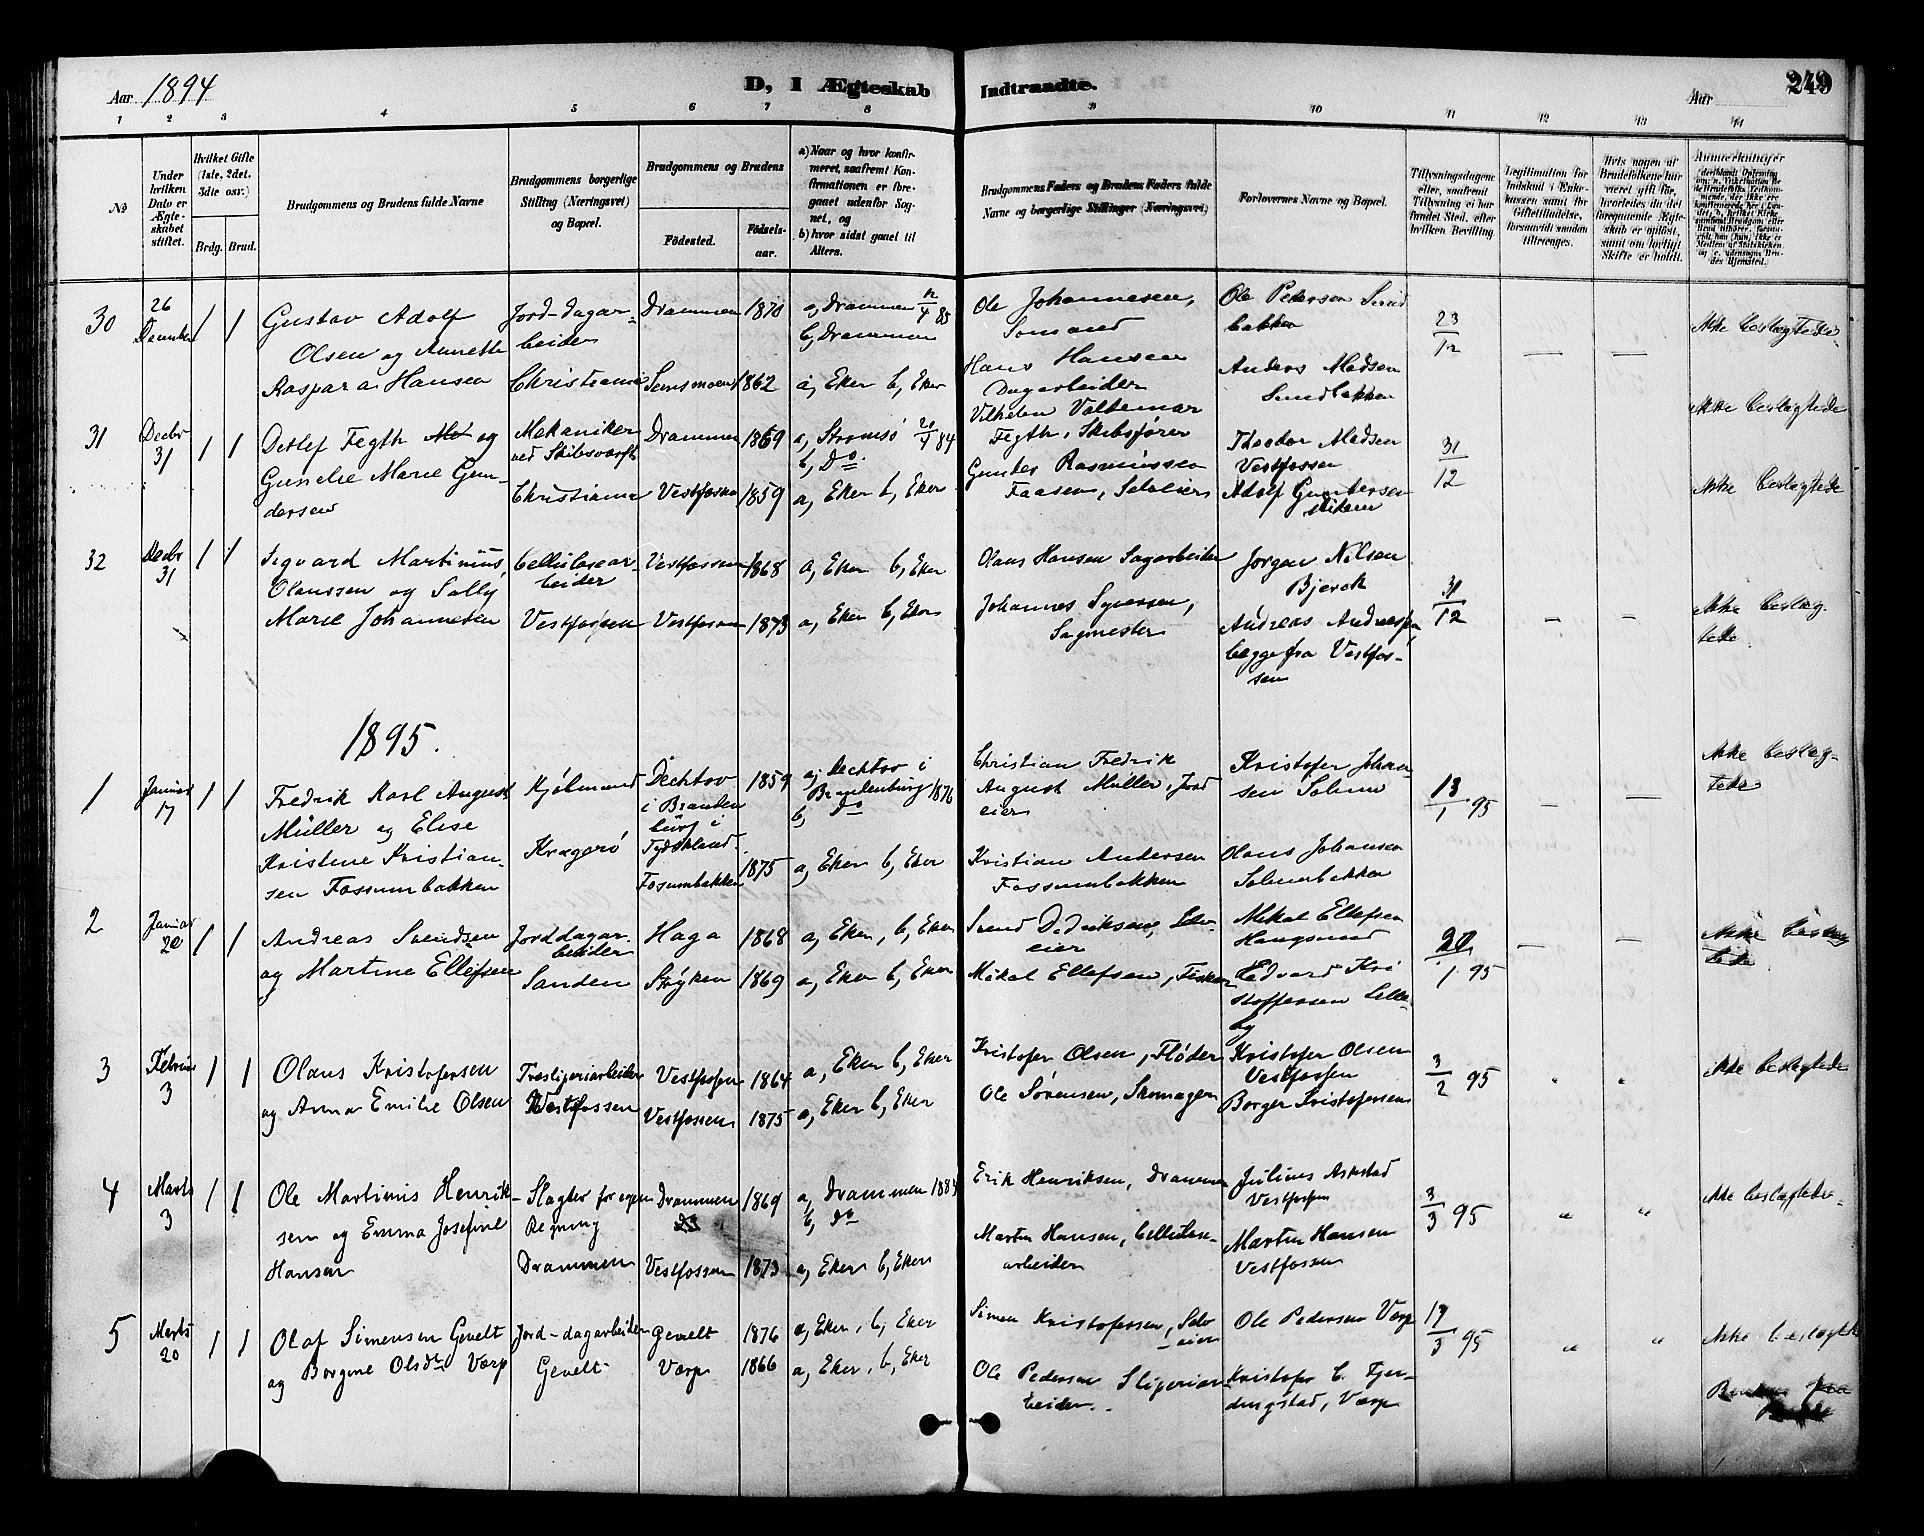 Aar 1894
D, I Ægteskab Indtraadte.
Aar
249
1 2 3 4 5 6 7 8 9 10 11 12 13 14
No
Under hvilken Dato er Ægteskabet stiftet.
Hvilket Gifte (1ste, 2det, 3die osv.)
Brdg. Brud.
Brudgommens og Brudens fulde Navne
Brudgommens borgerlige Stilling (Næringsvei) og Bopæl.
Brudgommens og Brudens
Födested.
Födselsaar.
a) Naar og hvor konfirmeret, saafremt Konfirmationen er foregaaet udenfor Sognet, og
b) hvor sidst gaaet til Alters.
Brudgommens Faders og Brudens Faders fulde Navne og borgerlige Stillinger (Næringsvei)
Forlovernes Navne og Bopæl.
Tillysningsdagene eller, saafremt Tillysning ei har fundet Sted, efter hvilken Bevilling
Legitimation for Indskud i Enkekassen samt for Giftetilladelse, forsaavidt saadan tiltrænges.
Hvis nogen af Brudefolkene har været gift för, hvorledes da det foregaaende Ægteskab er oplöst, samt om lovligt Skifte er holdt.
30 26 December 1 1 Gustav Adolf Olsen og Annette Kaspara Hansen
Jord-dagarbeider Christiania
Drammen 1870 a, Drammen 12/4 85 b, Drammen
Semsmoen 1862 a, Eker b, Eker
Ole Johannesen, Sömand
Hans Hansen Dagarbeider
Ole Pedersen Sund bakken
Anders Madsen Sundbakken
23/12 — — Ikke beslægtede
31 Decbr 31 1 1 Detlef Fegth og Gunelie Marie Gundersen
Mekaniker ved Skibsværft Christiania
Drammen 1869 a, Strømsö 20/4 84 b, Do
Vestfossen 1859 a, Eker b, Eker
Vilhelm Valdemar Fegth, Skibsfører
Gunder Rasmussen Faasen,
Theodor Madsen Vestfossen
Adolf Gundersen
31/12 Ikke beslægtede
Ikke beslegtede
32 Decbr 31 1 1 Sigvard Martinius Olaussen og Sally Marie Johannesen
Cellulosearbeider Vestfossen
Vestfossen 1868 a, Eker b, Eker
Vestfossen 1873 a, Eker b, Eker
Olaus Hansen Sagarbeider
Johannes Syversen, Sagmester
Jørgen Nilsen Bjerck
Andreas Andersen begge fra Vestfossen
31/12 — — Ikke beslægtede
1895.
1 Januar 17 1 1 Fredrik Karl August Müller og Elise Kristine Kristiansen Fossumbakken
Kjøbmand Kragerø
Dechtov i Brandenburg i Tydskland. 1859 a, Dechtov i Brandenburg 1876 b, do
Fosumbakken 1875 a, Eker b, Eker
Christian Fredrik August Müller, Jordeier
Kristian Andersen Fossumbakken
Kristofer Johansen Solem
Olaus Johansen Solembakken
13/1 95 — — Ikke beslægtede
2 Januar 20 1 1 Andreas Svendsen og Martine Ellefsen
Jorddagarbeider Sanden
Haga 1868 a, Eker, b, Eker
Røyken 1869 a, Eker b, Eker
Svend Didriksen, Selveier
Mikal Ellefsen, Fisker
Mikal Ellefsen Haugsund
Edvard Kristoffersen Lilleby
20/1 95 — — Ikke beslægtede
3 Februar 3 1 1 Olaus Kristofersen og Anna Emilie Olsen
Træsliperiarbeider Vestfossen
Vestfossen 1864 a, Eker b, Eker
Vestfossen 1875 a, Eker b, Eker
Kristofer Olsen, Fløder
Ole Sørensen, Skomager
Kristofer Olsen Vestfossen
Borger Kristofersen
3/2 95 " " Ikke beslegtede
4 Marts 3 1 1 Ole Martinis Henriksen og Emma Josefine Hansen
Slagter for egen Regning Drammen
Drammen 1869 a, Drammen 1884 b, do
Vestfossen 1873 a, Eker b, Eker
Erik Henriksen, Drammen
Martin Hansen, Cellulosearbeider
Julius Askestad Vestfossen
Martin Hansen Vestfossen
3/3 95 " " Ikke beslægtede
5 Marts 20 1 1 Olaf Simensen Gevelt og Borgine Olsdtr Værp
Jord-dagarbeider Gevelt
Gevelt 1876 a, Eker, b, Eker
Værp 1866 a, Eker, b, Eker
Simen Kristofersen, Selveier
Ole Pedersen Sliperiarbeider.
Ole Pedersen Værp
Kristofer C. Fjerdingstad, Værp
17/3 95 " " Ikke beslægtede